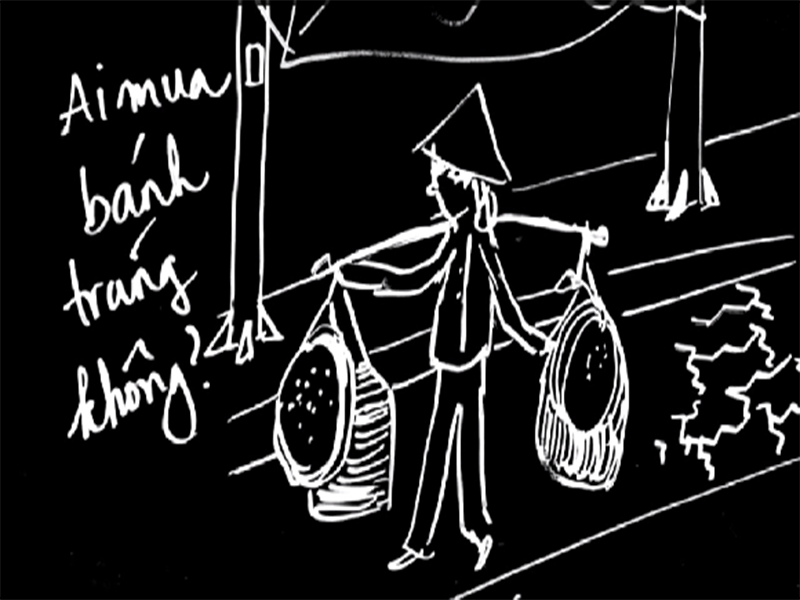 Ai mua
bánh
tráng
không?